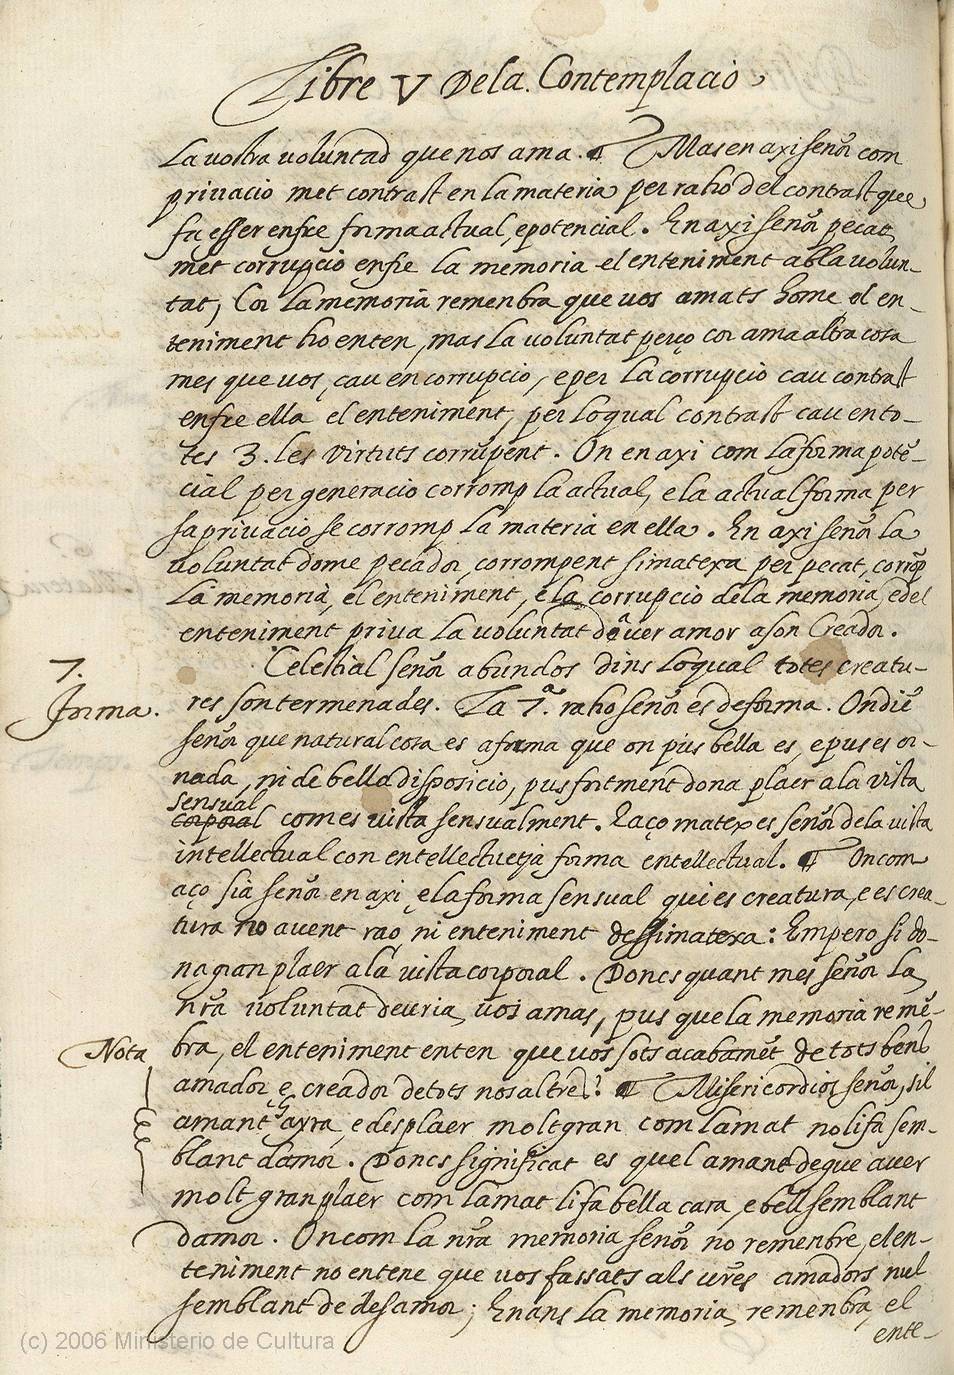 Libre V De la Contemplacio
La vostra voluntad que nos ama. ¶ Mas en axi señor com
privacio met contrast en la materia per raho del contrast que
fa esser enfre forma actual, e potencial. En axi señor pecat
met corrupcio enfre la memoria el enteniment ab la volun-
tat, Cor la memoria remenbra que vos amats home el en-
teniment ho enten, mas la voluntat perço cor ama altra cosa
mes que vos, cau en corrupcio, e per la corrupcio cau contrast
enfre ella el enteniment, per lo qual contrast cau en to-
tes 3. les virtuts corrupent. On en axi com la forma potē-
cial per generacio corromp la actual, e la actual forma per
sa privacio se corromp la materia en ella. En axi señor la
voluntat dome pecador, corrompent si matexa per pecat, corrōp
La memoria, el enteniment, e la corrupcio de la memoria, e del
enteniment priva la voluntat d aver amor a son Creador.
7. Celestial señor abundos dins lo qual totes creatu-
forma. res son termenades. La 7.ª raho señor es de forma. On diē
señor que natural cosa es a forma que on pus bella es, e pus es or-
nada, ni de bella disposicio, pus fortment dona plaer a la vista
sensual
corporal com es vista sensualment. E aço matex es señor de la vista
intellectual con entellectuetja forma entellectual. ¶ On com
aço sia señor en axi, e la forma sensual qui es creatura, e es crea-
tura no avent rao, ni enteniment dessi matexa: Empero si do-
na gran plaer a la vista corporal. Doncs quant mes señor la
nrā voluntat deuria vos amar, pus que la memoria remē-
Nota bra, el enteniment enten que vos sots acabamēt de tots bens
amador e creador de tots nosaltres? ¶ Misericordios señor, si l
amant s ayra, e desplaer molt gran com lamat no li fa sem-
blant damor. Doncs significat es quel amant degue aver
molt gran plaer com lamat li fa bella cara, e bell semblant
damor. On com la nrā memoria señor no remenbre, el en-
teniment no entene que vos fassats als vrēs amadors nul
semblant de desamor; Enans la memoria remenbra, el
ente-
(c) 2006 Ministerio de Cultura